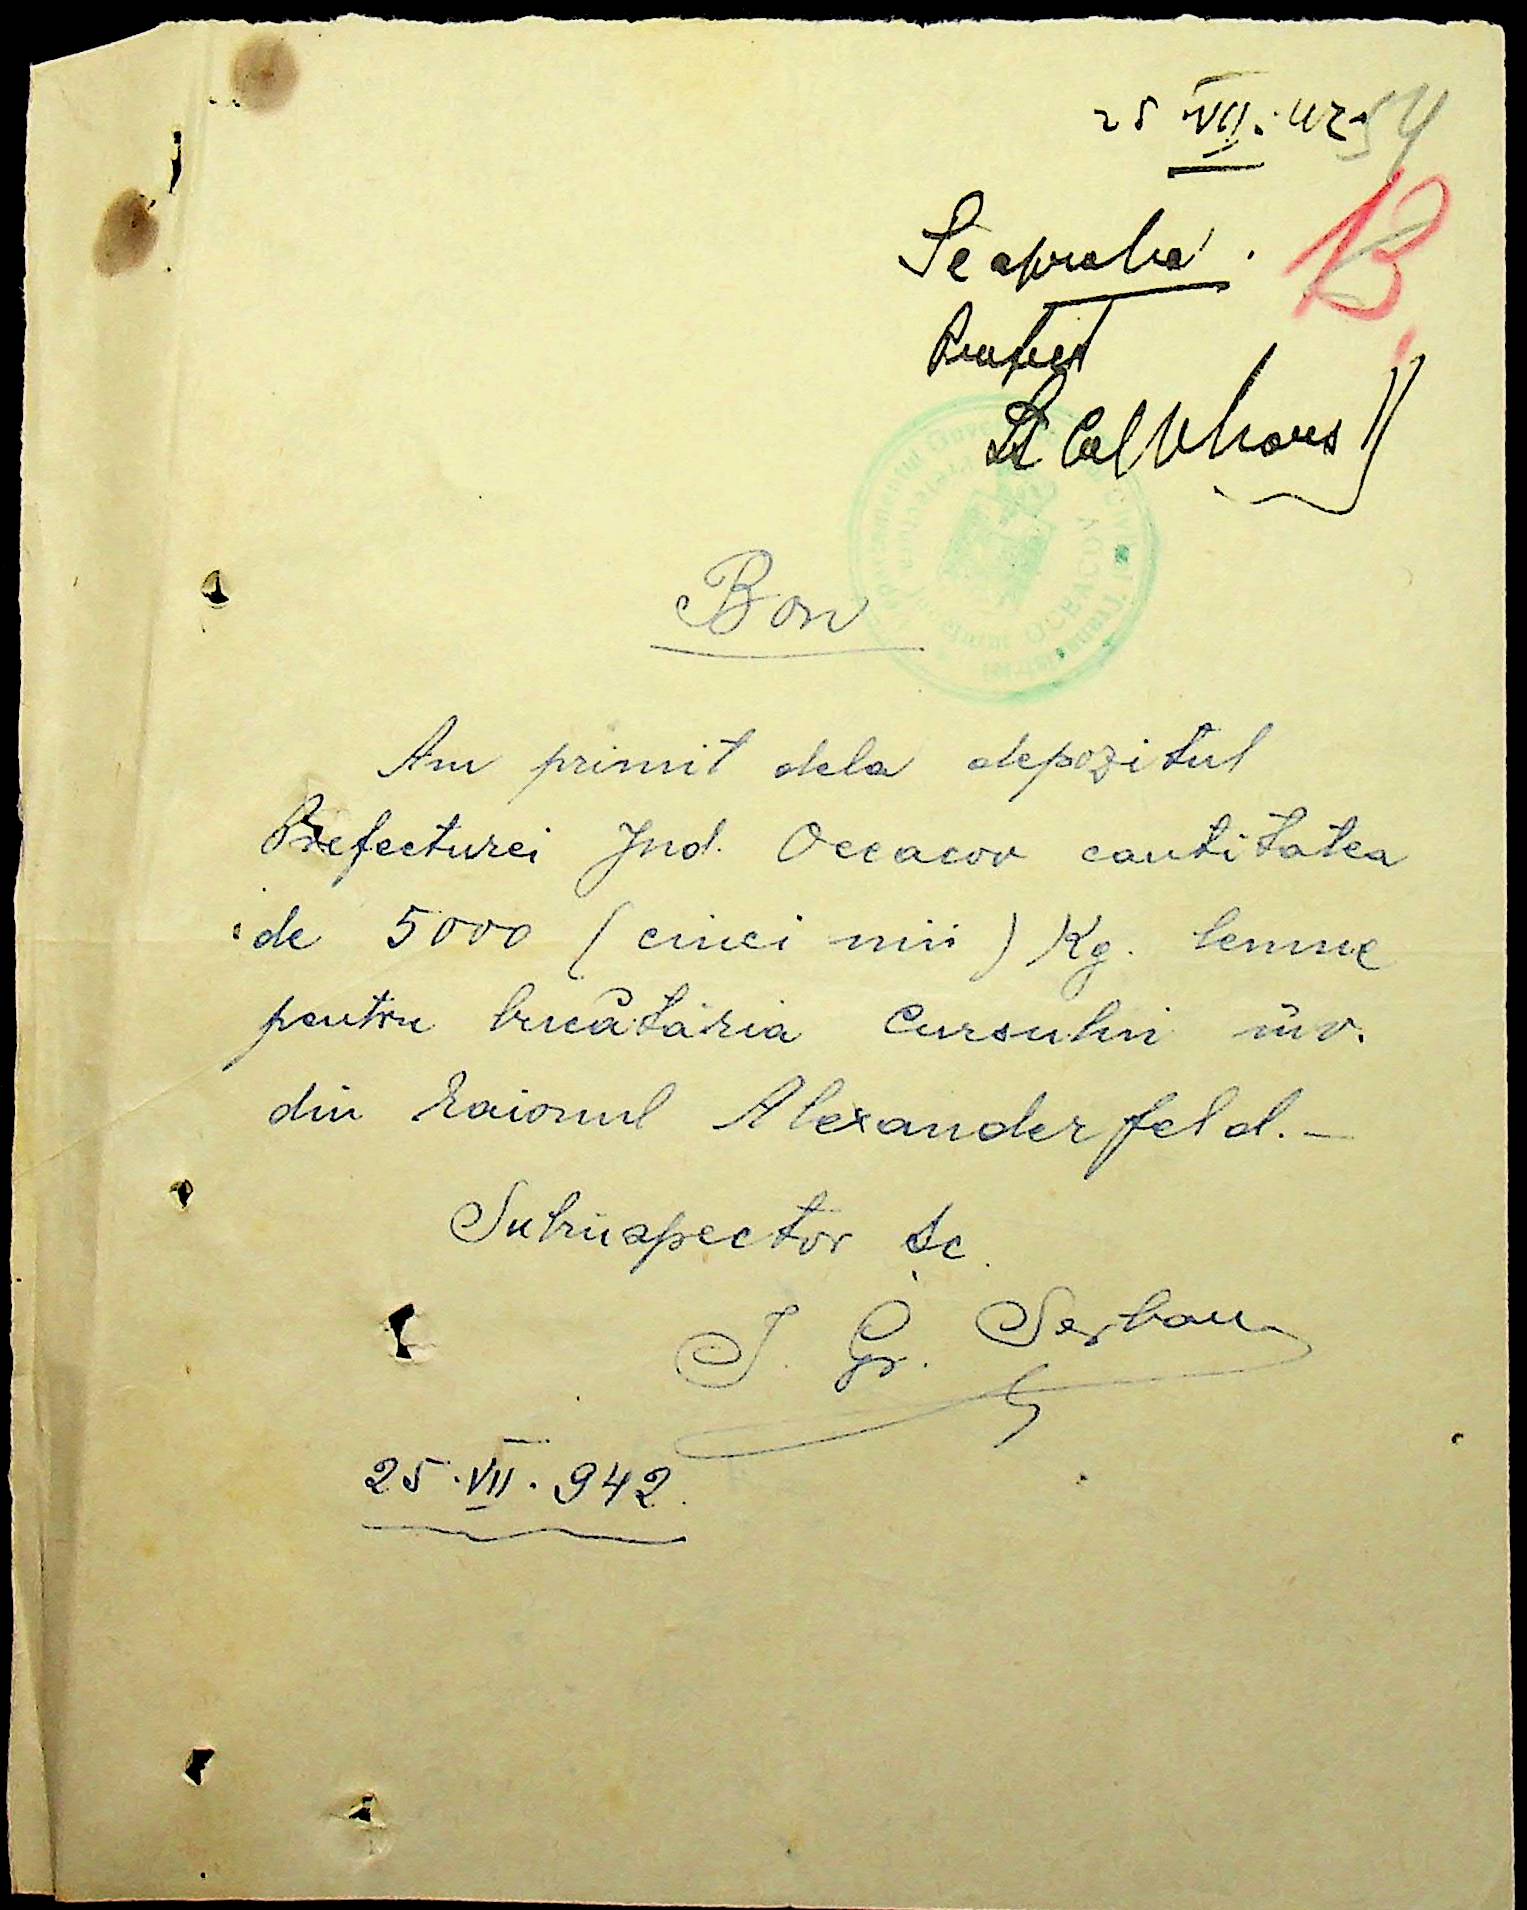 25 VII. 42
54
Se aproba.
Prefect
Lt Col
Bon
Am primit dela depozitul
Prefecturei Jud. Oceacov cantitatea
de 5000 (cinci mii) Kg. lemne
pentru bucătăria Cursului înv.
din raionul Alexanderfeld.—
Subinspector Sc.
I. Gr. Serban
25.VII.942.
OCEACOV